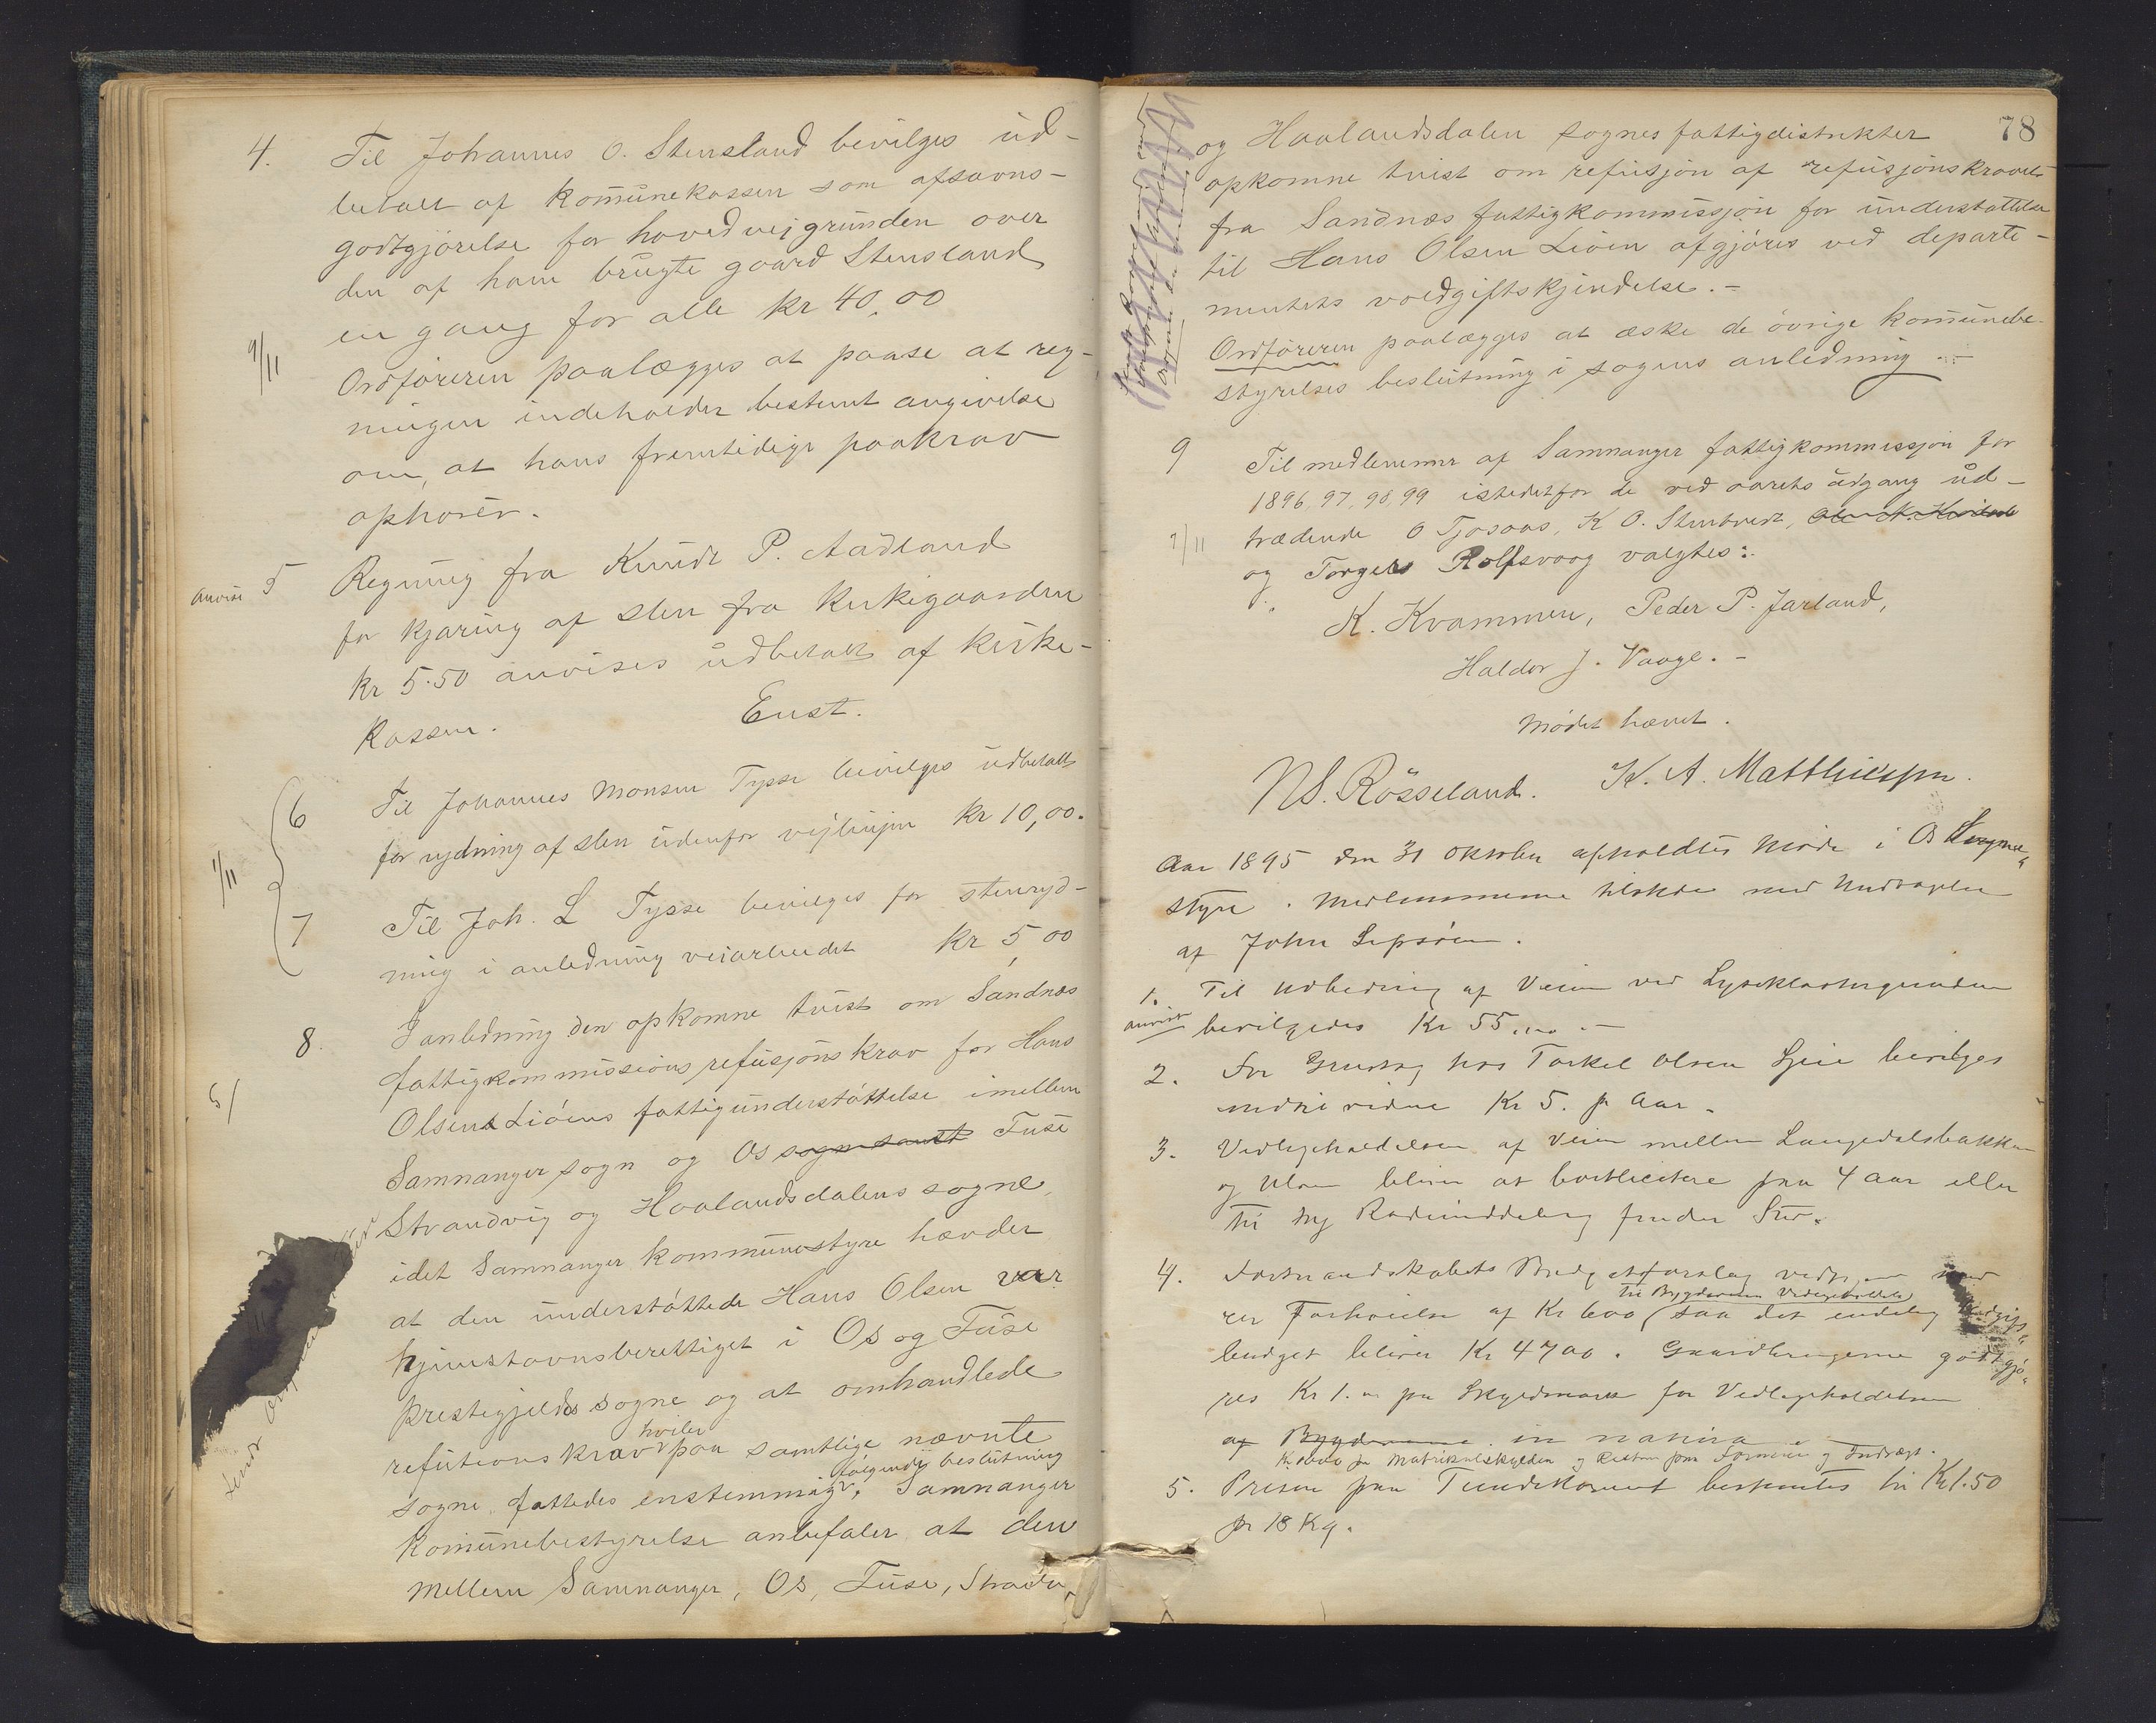 4. Til Johannes O. Stensland bevilges ud-
betalt af komünekassen som afsavns-
godtgjørelse for hovedveigrunden over
den af ham brugte gaard Stensland
en gang for alle kr 40,00
9/11 Ordføreren paalægges at paase at reg-
ningen indeholder bestemt angivelse
om, at hans fremtidige paakrav
ophører.
anvist 5 Regning fra Knudt P. Aadland
for kjøring af sten fra kirkegaarden
kr 5.50 anvises udbetalt af kirke-
kassen. Enst.
6 Til Johannes Monsen Tysse bevilges udbetalt
for rydning af sten udenfor veilinjen kr 10,00.
1/11
7 Til Joh. L Tysse bevilges for stenryd-
ning i anledning veiarbeidet kr 5,00
8. I anledning den opkomne tvist om Sandnæs
fattigkommissions refusjonskrav for Hans
5/ Olsens Liøens fattigunderstøttelse imellem
Samnanger sogn og Os sogn samt Fuse
Strandvig og Haalandsdalens sogne,
idet Samnanger kommunestyre hævder
at den understøttede Hans Olsen var
hjemstavnsberettiget i Os og Fuse
prestegjelds sogne og at omhandlede
hviler
refutionskrav paa samtlige nævnte
følgende beslutning
sogne, fattedes enstemmig: Samnanger
Komünebestyrelse anbefaler at den
mellem Samnanger, Os, Fuse, Strandv.
78
og Haalandsdalen sognes fattigdistrikter
opkomne tvist om refusjon af refusjonskravet
fra Sandnæs fattigkommissjon for understøttelse
til Hans Olsen Liøen afgjøres ved departe-
mentets voldgiftskjendelse.-
Ordføreren paalægges at æske de øvrige komünebe-
styrelses beslutning i sagens anledning.-
9 Til medlemmer af Samnanger fattigkommissjon for
1896, 97, 98, 99 istedetfor de ved aarets udgang ud-
trædende O Tjosaas, K O. Stenbredt,
7/11
og Torgers Rolfsvaag valgtes:
K. Kvammen, Peder P. Jarland,
Haldor J. Vaage.-
Mødet hævet.
N S. Røsseland. K. A. Matthiessen.
Aar 1895 den 31 Oktober afholdtes Møde i Os
styre. Medlemmerne tilstede med Undtagelse
af John Sepsøen.
1. Til Udbedring af Veien ved Lyseklostergrunden
anvist bevilgedes Kr 55.
2. For Grustag hos Torkel Olsen Lien bevilges
indtil videre Kr 5. pr Aar.
3. Vedligeholdelsen af Veien mellem Langedalsbakken
og Ulven bliver at bortlicitere paa 4 Aar eller
til ny Rodeinddeling finder Sted.
4. Formandskabets Budgetforslag vedtages med
til Bygdeveienes Vedligeholdelse
en Forhøielse af Kr 600 (saa det endelig Udgifts-
budget bliver Kr 4700. Gaardbrugerne godtgjø-
res Kr 1. pr Skyldmark for Vedligeholdelsen
af Bygdeveiene in natura
pr Matrikulskylden og Resten paa Formue og Indtægt.
5. Prisen paa Tiendekornet bestemtes til Kr 1.50
pr 18 Kg.